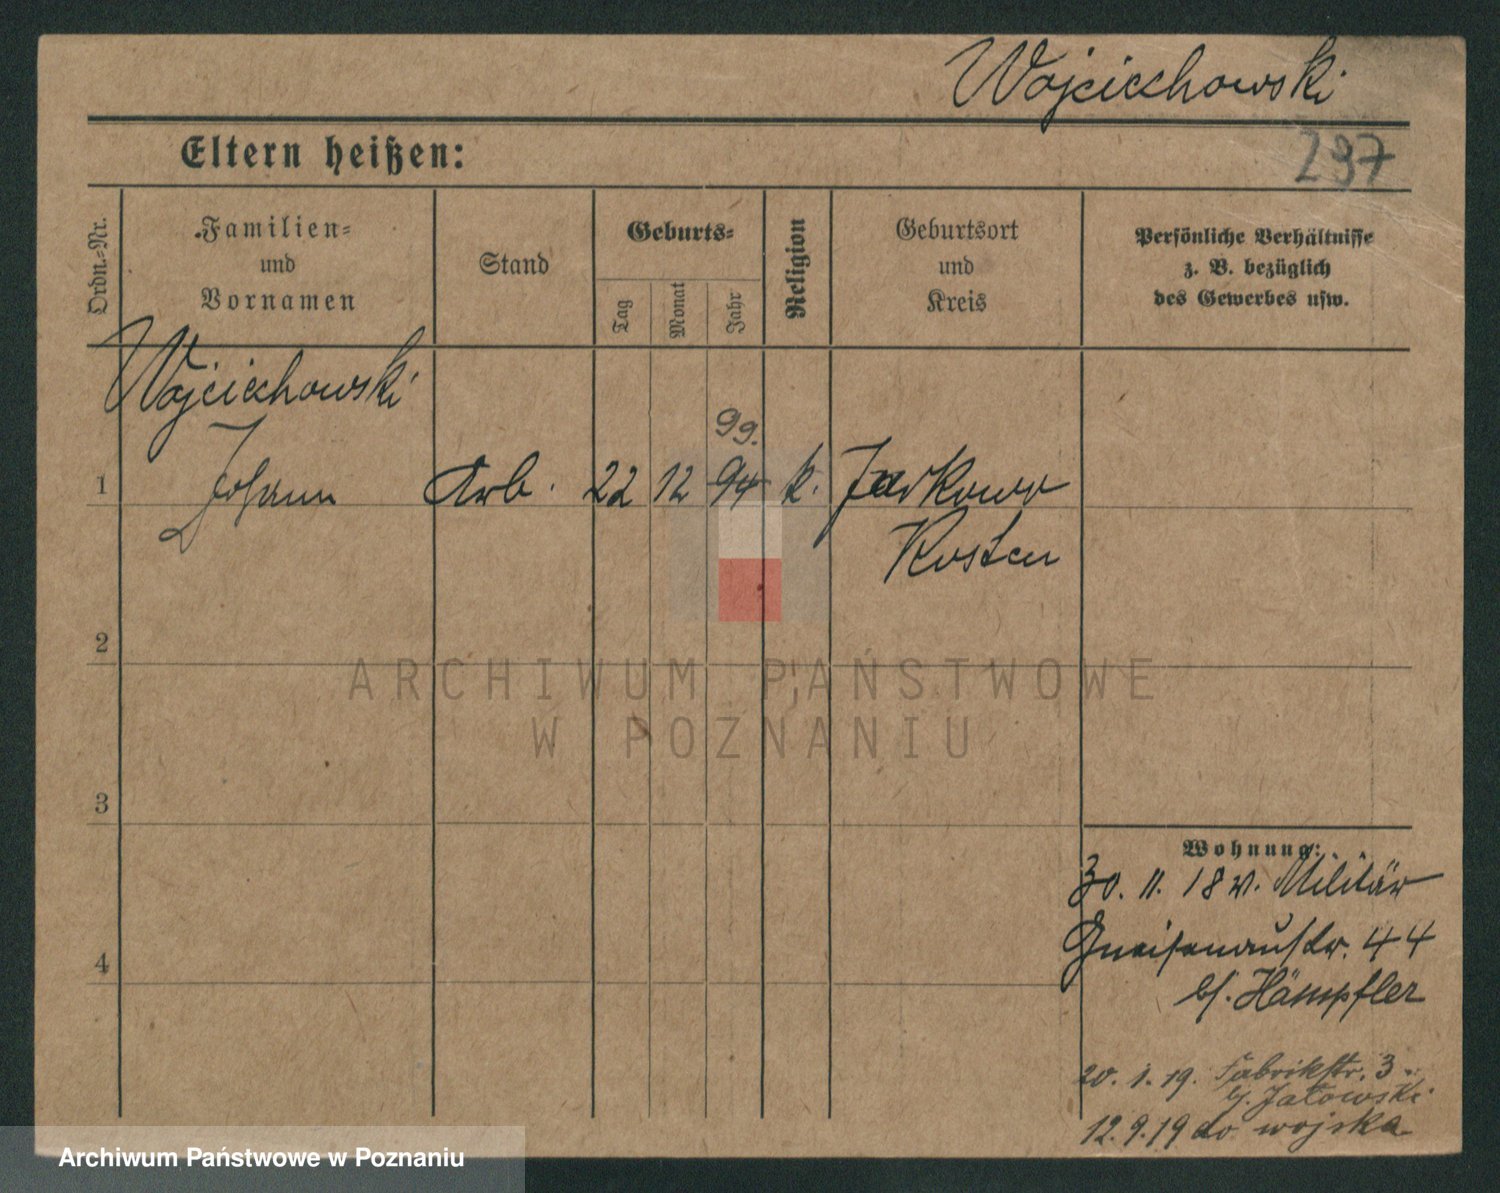 Wojciechowski
297
Eltern heißen:
Ordn.-Nr.
Familien-
und
Vornamen
Stand
Geburts-
Tag
Monat
Jahr
Religion
Geburtsort
und
Kreis
Persönliche Verhältnisse
z. B. bezüglich
des Gewerbes usw.
Wojciechowski
99.
1 Johann Arb. 22 12 94 k. Jarkowo
Kosten
2
3
4
Wohnung:
30. 11. 18 v. Militär
Gneisenaustr. 44
bs. Hämpfler
20. 1. 19. Fabrikstr. 3
b. Jatowski
12. 9. 19 do wojska
ARCHIWUM PAŃSTWOWE
W POZNANIU
Archiwum Państwowe w Poznaniu